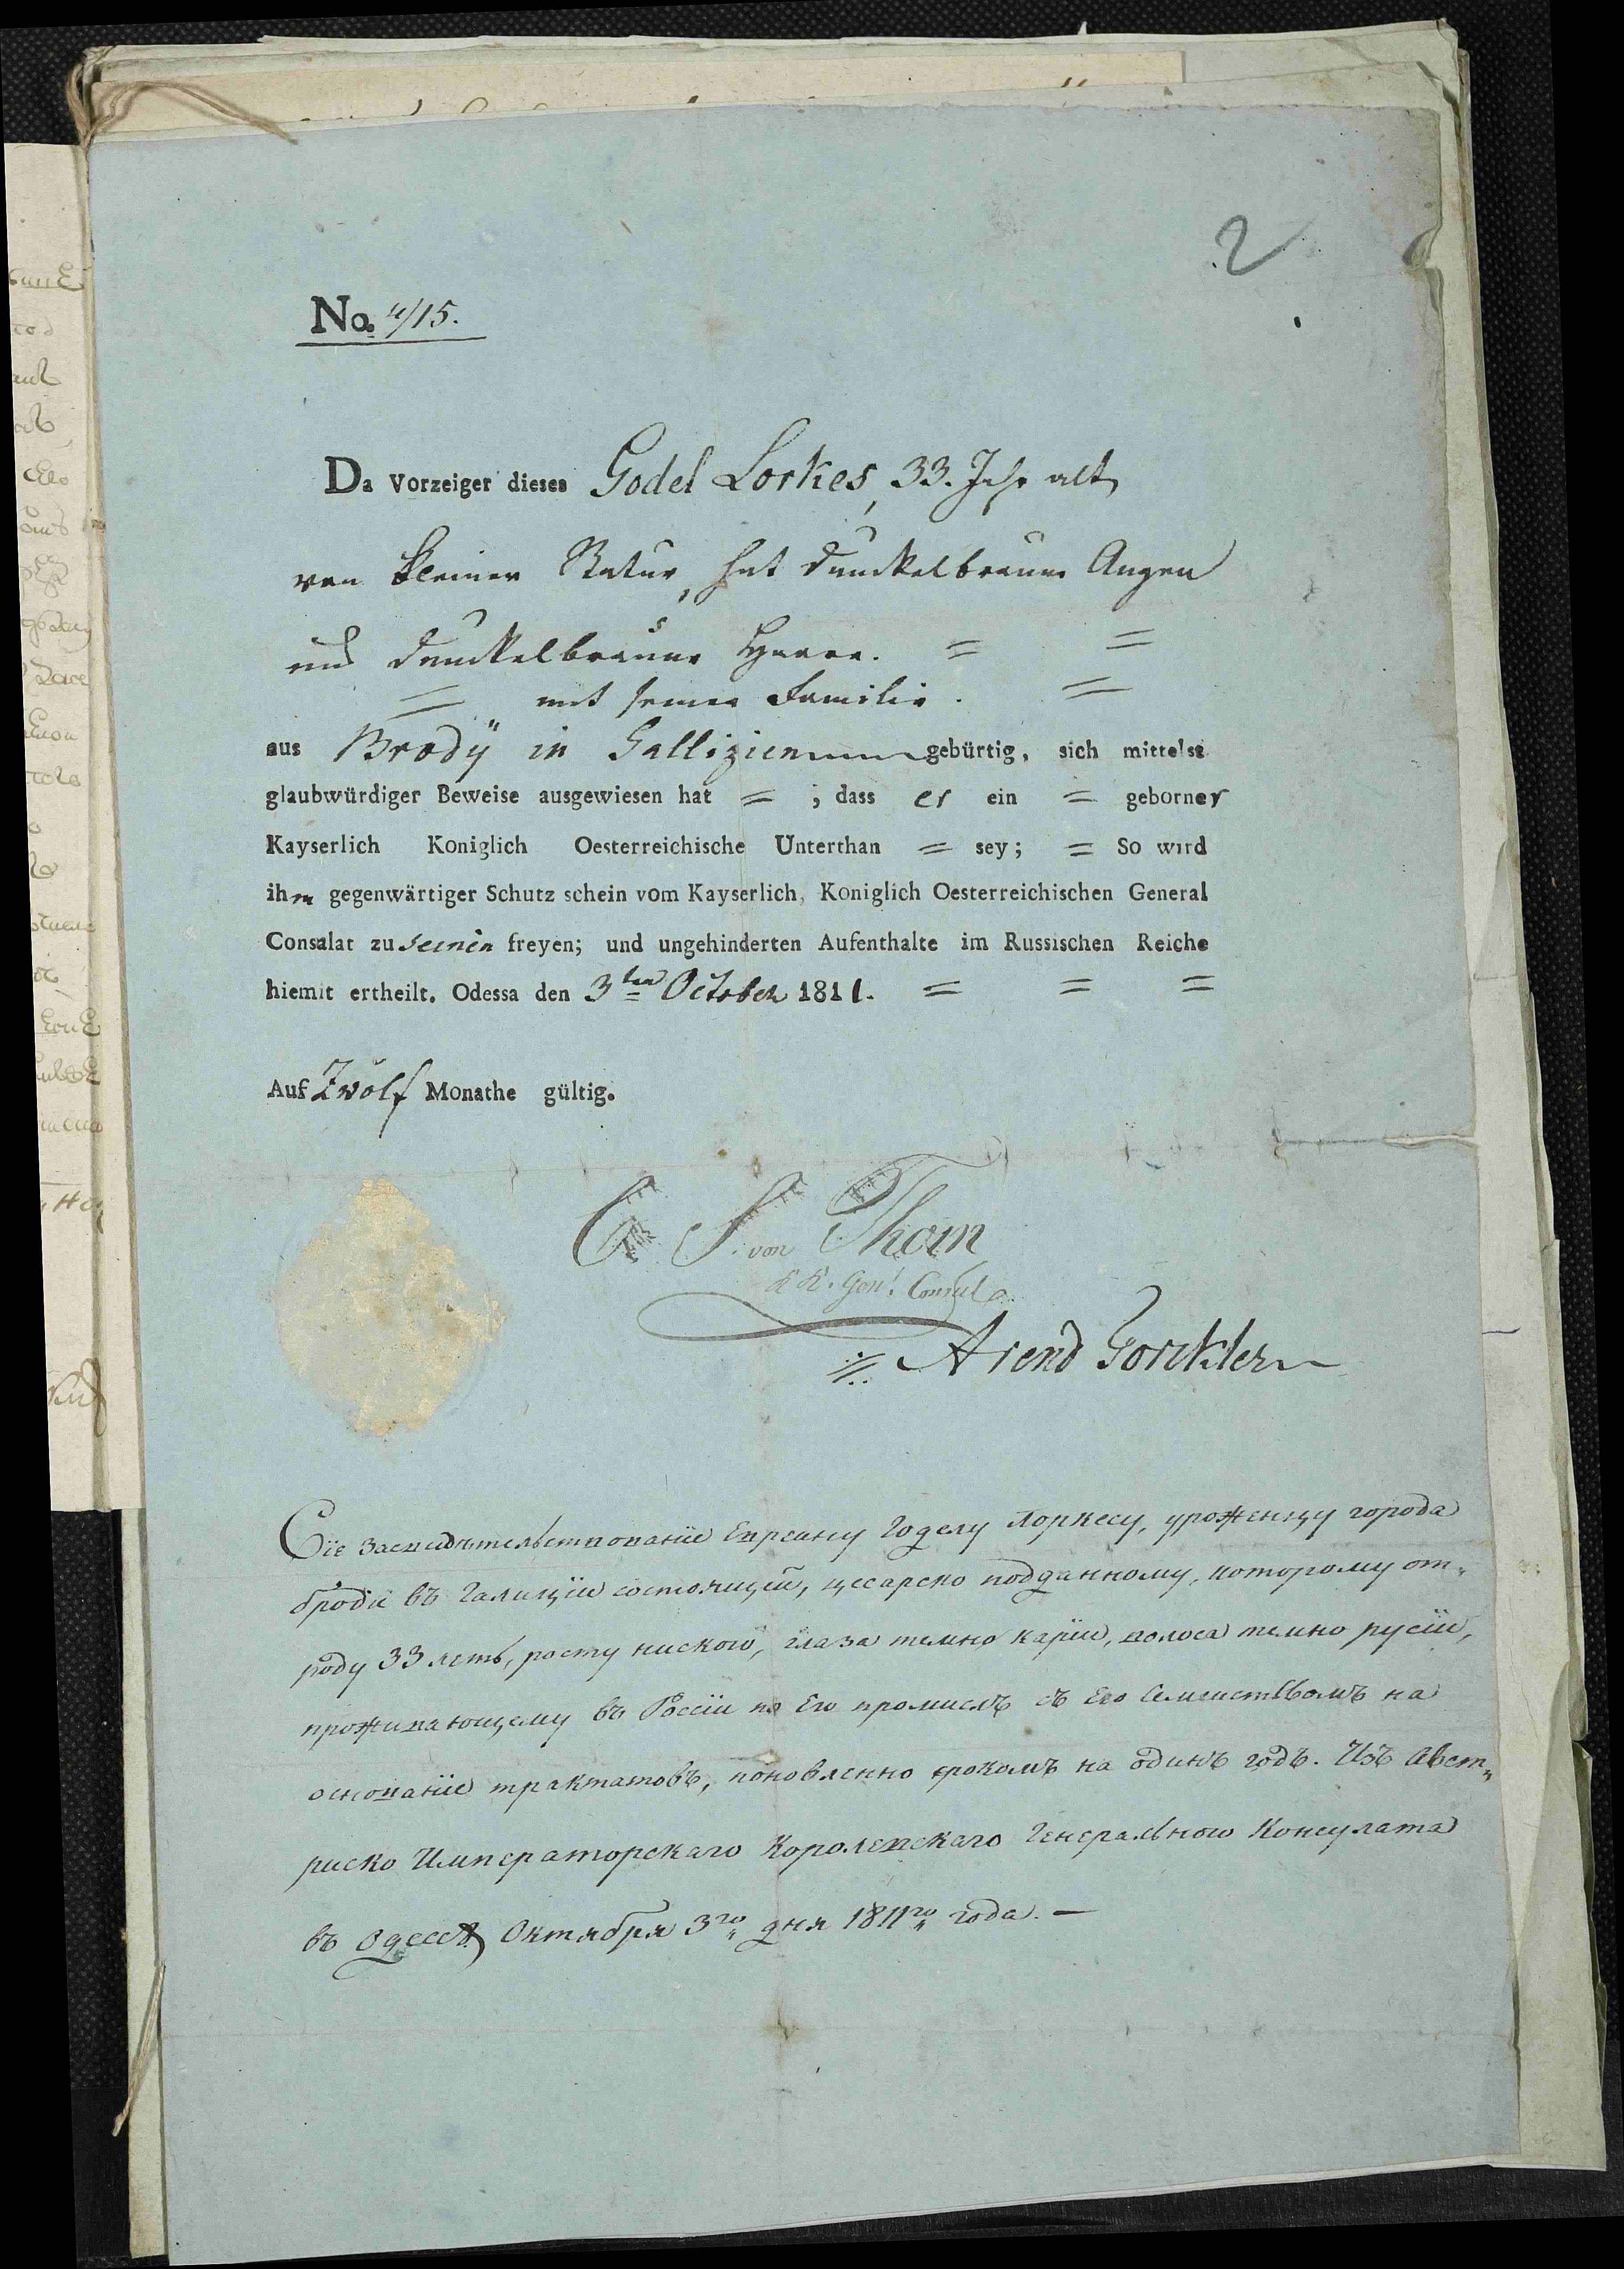 2
No. 4/15.
Da Vorzeiger dieses Godel Lorkes, 33. Jahr alt,
von kleiner Statur, hat dunckelbraune Augen
und dunckelbraune Haare. = =
= mit seiner Familie. =
aus Brodÿ in Gallizien gebürtig, sich mittelst
glaubwürdiger Beweise ausgewiesen hat = ; dass er ein = geborner
Kayserlich Koniglich Oesterreichische Unterthan = sey; = So wird
ihm gegenwärtiger Schutz schein vom Kayserlich, Koniglich Oesterreichischen General
Consulat zu seinen freyen; und ungehinderten Aufenthalte im Russischen Reiche
hiemit ertheilt. Odessa den 3ten October 1811. = = =
Auf Zwölf Monathe gültig.
S. von Thom
KK. Genl. Consul
Сїе засвидѣтельствованїе Евреину Годелу Лоркесу, уроженцу города
броди въ Галицїи состоящей, цесарско подданному, которому от„
роду 33 летъ, росту ниского, глаза темно карїи, волоса темно русїи,
проживающему въ Россїи по Его промислъ съ Его Семействомъ на
основанїе трактатовъ, поновленно срокомъ на одинъ годъ. Изъ Авст„
риско Императорскаго Королевскаго Генеральнаго Консулата
въ Одессѣ Октября 3го дня 1811го года. —